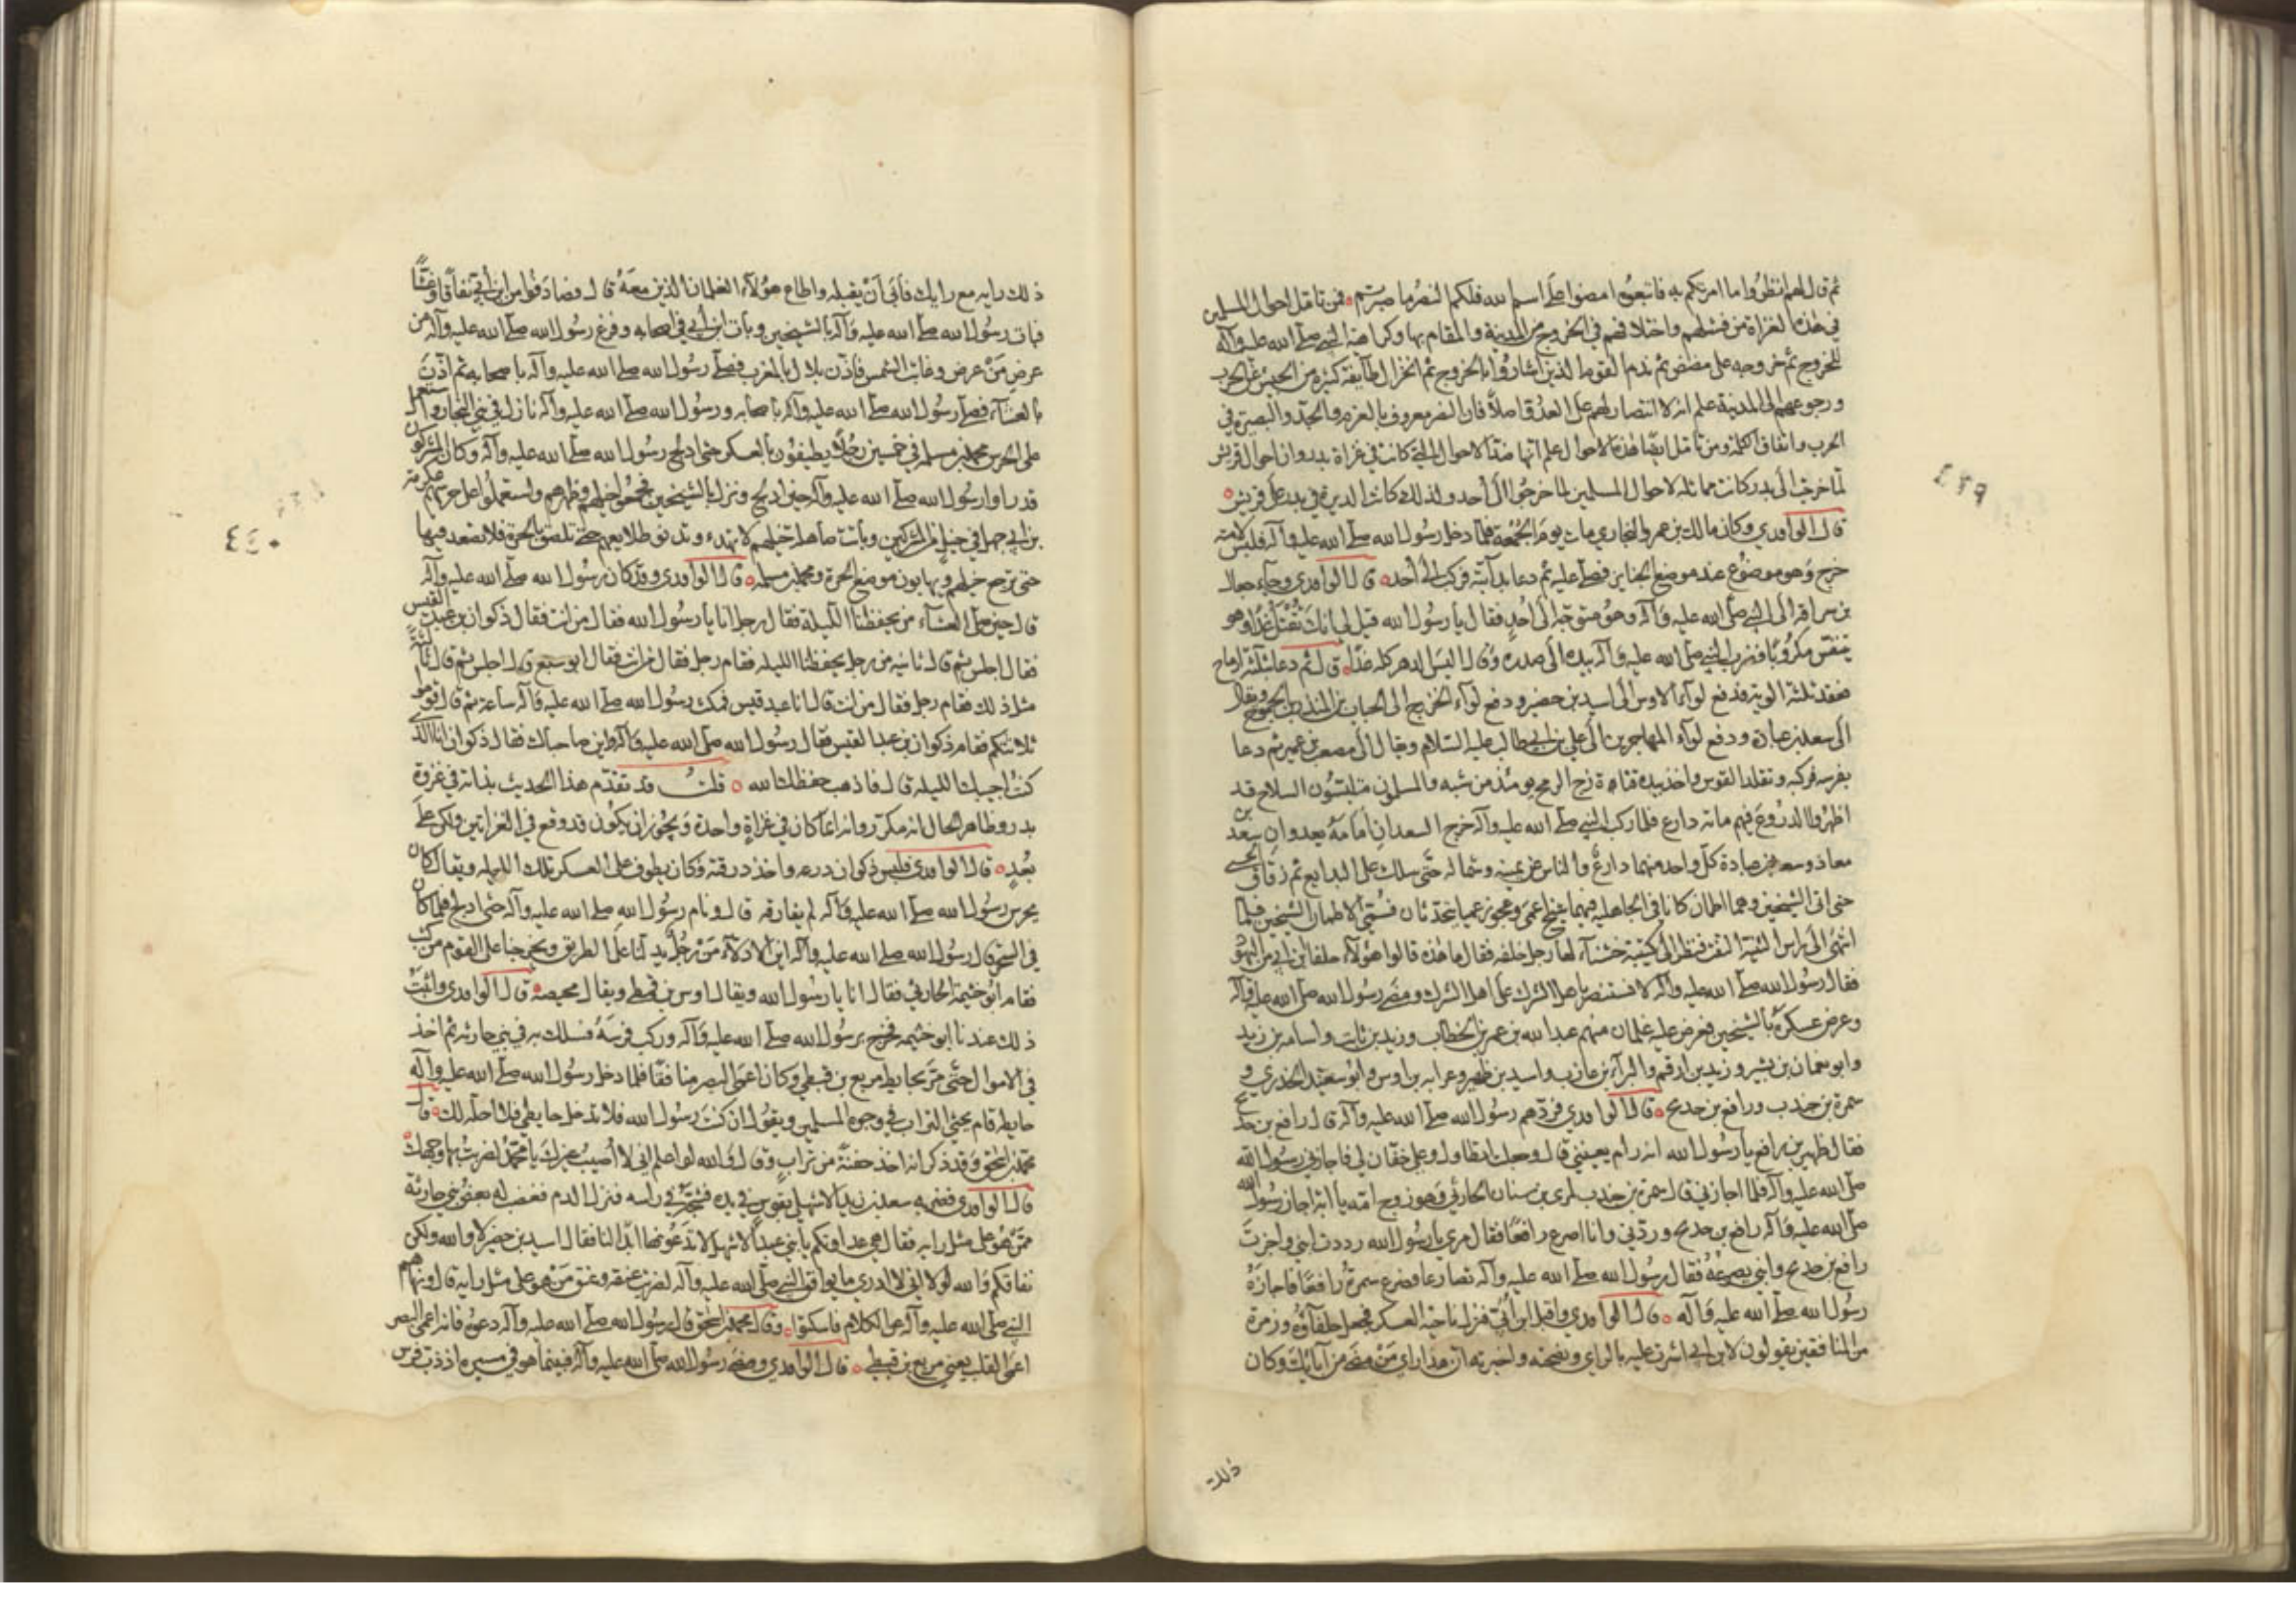 ثم قال لهم انظروا ما امرتكم به فاتبعوه امضوا على اسم الله فلكم النصر ما صبرتم فمن تامل احوال المسلمين
في هذه الغزاة من فشلهم واختلافهم في الخروج من المدينة والمقام بها وكراهة النبي صلى الله عليه وآله
للخروج ثم خروجه على مضض ثم ندم القوم الذين اشاروا بالخروج ثم انخزال طائفة كثيرة من الجيش عن الحرب
ورجوعهم الى المدينة علم انه لا انتصار لهم على العدو اصلاً فان النصر معروف بالعزم والجد والبصيرة في
الحرب واتفاق الكلمة ومن تامل ايضا هذه الاحوال علم انها ضد الاحوال التي كانت في غزاة بدر وان احوال قريش
لما خرجت الى بدر كانت مماثلة لاحوال المسلمين لما خرجوا الى أحد ولذلك كانت الدبرة في بدر على قريش
قال الواقدي وكان مالك بن عمرو النجاري مات يوم الجمعة فلما دخل رسول الله صلى الله عليه وآله فلبس لامته
خرج وهو موضوع عند موضع الجنايز فصلى عليه ثم دعا بدابته فركب الى أحد قال الواقدي وجاء جعال
بن سراقة الى النبي صلى الله عليه وآله وهو متوجه الى احد فقال يا رسول الله قيل لي انك تقتل غدًا وهو
يتنفس مكروبًا فضرب النبي صلى الله عليه وآله بيده الى صدره وقال اليس الدهر كله غدًا قال ثم دعا بثلثة ارماح
فعقد ثلثة الوية فدفع لواء الاوس الى اسيد بن حضير ودفع لواء الخزرج الى الحباب بن المنذر بن الجموح ويقال
الى سعد بن عبادة ودفع لواء المهاجرين الى علي بن ابي طالب عليه السلام ويقال الى مصعب بن عمير ثم دعا
بفرسه فركبه وتقلد القوس واخذ بيده قناة زج الرمح يومئذ من شبه والمسلمون متلبسون السلاح قد
اظهروا الدروع فيهم مائة دارع فلما ركب النبي صلى الله عليه وآله خرج السعدان امامه يعدوان سعد بن
معاذ وسعد بن عبادة كل واحد منهما دارع والناس عن يمينه وشماله حتى سلك على البدايع ثم زقاق الحسي
حتى اتى الشيخين وهما اطمان كانا في الجاهلية فيهما شيخ اعمى وعجوز عميا يتحدثان فسمي الاطمان الشيخين فلما
انتهى الى راس الثنية التفت فنظر الى كتيبة خشناء لها زجل خلفه فقال ما هذه قالوا هؤلاء حلفا ابن ابي من اليهود
فقال رسول الله صلى الله عليه وآله لا نستنصر باهل الشرك على اهل الشرك ومضى رسول الله صلى الله عليه وآله
وعرض عسكره بالشيخين فعرض عليه غلمان منهم عبد الله بن عمر بن الخطاب وزيد بن ثابت واسامه بن زيد
وابو نعمان بن بشير وزيد بن ارقم والبراء بن عازب واسيد بن ظهير وعرابه بن اوس وابو سعيد الخدري و
سمرة بن جندب ورافع بن خديج قال الواقدي فردهم رسول الله صلى الله عليه وآله قال رافع بن خديج
فقال ظهير بن رافع يا رسول الله انه رام يعينني قال وجعلت اتطاول وعلي خفان لي فاجازني رسول الله
صلى الله عليه وآله فلما اجازني قال سمرة بن جندب لمري بن سنان الحارثي وهو زوج امه يا ابه اجاز رسول الله
صلى الله عليه وآله رافع بن خديج وردني وانا اصرع رافعًا فقال مري يا رسول الله رددت ابني واجزت
رافع بن خديج وابني يصرعه فقال رسول الله صلى الله عليه وآله تصارعا فصرع سمرة رافعًا فاجازه
رسول الله صلى الله عليه وآله قال الواقدي واقبل ابن أبي فنزل ناحية العسكر فجعل حلفاؤه وزمرة
من المنافقين يقولون لابن ابي اشرت عليه بالراي ونصحته واخبرته ان هذا راي من مضى من آبائك وكان
ذلك
٤٣٩
ذلك رايه مع رايك فأبى أن يقبله واطاع هؤلاء الغلمان الذين معه قال فصادفوا من ابن أبي نفاقًا وغشًا
فبات رسول الله صلى الله عليه وآله بالشيخين وبات ابن أبي في اصحابه وفرغ رسول الله صلى الله عليه وآله من
عرض من عرض وغابت الشمس فأذن بلال بالمغرب فصلى رسول الله صلى الله عليه وآله باصحابه ثم اذن
بالعشاء فصلى رسول الله صلى الله عليه وآله باصحابه ورسول الله صلى الله عليه وآله نازل في بني النجار واستعمل
على الحرس محمد بن مسلمه في خمسين رجلا يطيفون بالعسكر حتى ادلج رسول الله صلى الله عليه وآله وكان المشركون
قد راوا رسول الله صلى الله عليه وآله حين ادلج ونزل بالشيخين فجمعوا خيلهم وظهرهم واستعملوا على حرسهم عكرمة
بن ابي جهل في خيل من المشركين وباتت صاهلة خيلهم لا تهدء وتدنو طلايعهم حتى تلصق بالحرة فلا تصعد فيها
حتى ترجع خيلهم ويهابون موضع الحرة ومحمد بن مسلمه قال الواقدي وقد كان رسول الله صلى الله عليه وآله
قال حين صلى العشاء من يحفظنا الليلة فقال رجل انا يا رسول الله فقال من انت فقال ذكوان بن عبد القيس
فقال اجلس ثم قال ثانيه من رجل يحفظنا الليله فقام رجل فقال من انت فقال ابو سبع قال اجلس ثم قال ثالثةً
مثل ذلك فقام رجل فقال من انت قال انا عبد قيس فمكث رسول الله صلى الله عليه وآله ساعة ثم قال قوموا
ثلاثتكم فقام ذكوان بن عبد القيس فقال رسول الله صلى الله عليه وآله واين صاحباك فقال ذكوان انا الذي
كنت اجيبك الليله قال فاذهب حفظك الله قلت قد تقدم هذا الحديث بذاته في غزوة
بدر وظاهر الحال انه مكرر وانه انما كان في غزاة واحدة ويجوز ان يكون قد وقع في الغزاتين ولكن على
بعد قال الواقدي فلبس ذكوان درعه واخذ درقته وكان يطوف على العسكر تلك الليله ويقال كان
يحرس رسول الله صلى الله عليه وآله لم يفارقه قال ونام رسول الله صلى الله عليه وآله حتى ادلج فلما كان
في السحر قال رسول الله صلى الله عليه وآله اين الادلاء من رجل يدلنا على الطريق ويخرجنا على القوم من كثب
فقام أبو خثيمة الحارثي فقال انا يا رسول الله ويقال اوس بن قيظي ويقال محيصه قال الواقدي واثبت
ذلك عندنا ابو خثيمه فخرج برسول الله صلى الله عليه وآله وركب فرسه فسلك به في بني حارثه ثم اخذ
في الاموال حتى مر بحايط مربع بن قيظي وكان اعمى البصر منافقًا فلما دخل رسول الله صلى الله عليه وآله
حايطه قام يحثي التراب في وجوه المسلمين ويقول ان كنت رسول الله فلا تدخل حايطي فلا احله لك قال
محمد بن اسحق وقد ذكر انه اخذ حفنة من تراب وقال والله لو اعلم اني لا أصيب غيرك يا محمد لضربت بها وجهك
قال الواقدي فضربه سعد بن زيد الاشهلي بقوس في يده فشجه في راسه فنزل الدم فغضب له بعض بني حارثة
ممن هو على مثل رايه فقال هي عداوتكم يا بني عبد الاشهل لا تدعونها ابدًا لنا فقال اسيد بن حضير لا والله ولكن
نفاقكم والله لولا اني لا ادري ما يوافق النبي صلى الله عليه وآله لضربت عنقه وعنق من هو على مثل رايه قال ونهاهم
النبي صلى الله عليه وآله عن الكلام فاسكتوا وقال محمد بن اسحق قال رسول الله صلى الله عليه وآله دعوه فانه اعمى البصر
اعمى القلب يعني مربع بن قيظي قال الواقدي ومضى رسول الله صلى الله عليه وآله فبينما هو في مسيره اذ ذب فرس
٤٤٠